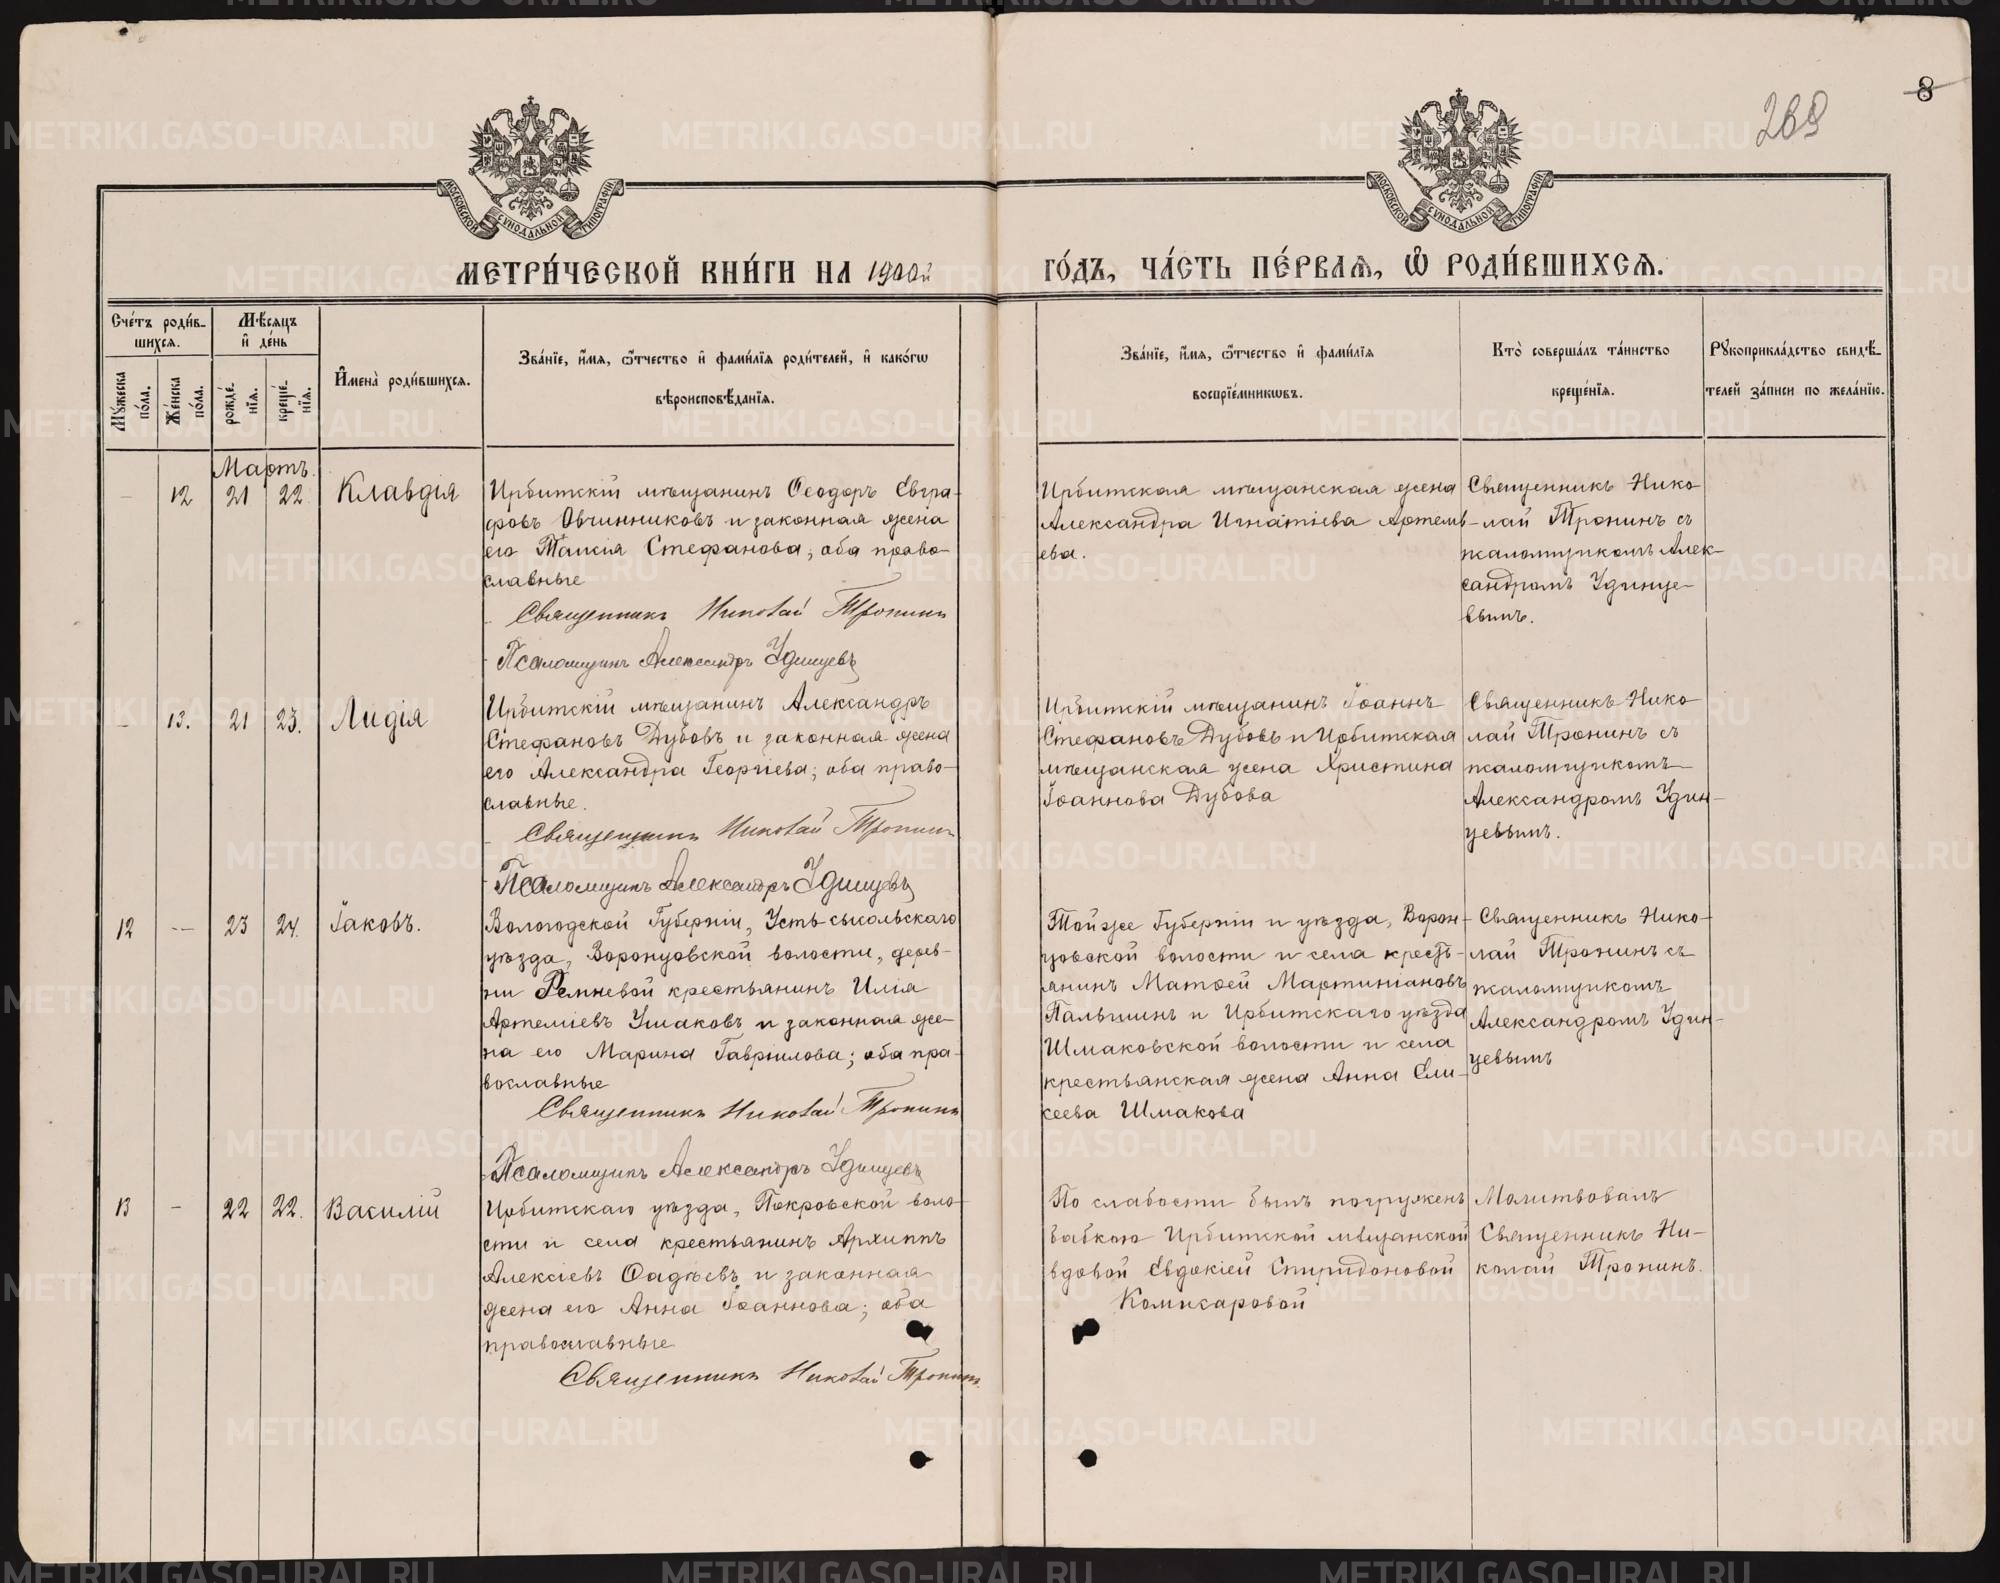 269
8
МОСКОВСКОЙ СѴНОДАЛЬНОЙ ТИПОГРАФІИ
МОСКОВСКОЙ СѴНОДАЛЬНОЙ ТИПОГРАФІИ
МЕТРИ́ЧЕСКОЙ КНИ́ГИ НА 1900й
ГО́ДЪ, ЧА́СТЬ ПЕ́РВАѦ, Ѽ РОДИ́ВШИХСѦ.
Сче́тъ роди́в-
шихсѧ.
Мꙋ́жеска
по́ла.
Же́нска
по́ла.
Мѣ́сяцъ
и҆ де́нь
рожде́-
нїѧ.
креще́-
нїѧ.
И҆мена̀ роди́вшихсѧ.
Зва́нїе, и҆́мѧ, ѻ҆́тчество и҆ фами́лїѧ роди́телей, и҆ како́гѡ
вѣроисповѣ́данїѧ.
Зва́нїе, и҆́мѧ, ѻ҆́тчество и҆ фами́лїѧ
воспрїе́мникѡвъ.
Кто̀ соверша́лъ та́инство
креще́нїѧ.
Рꙋкоприкла́дство свидѣ́-
телей за́писи по жела́нїю.
Мартъ.
—
12
21
22
Клавдія
Ирбитскій мѣщанинъ Ѳеодоръ Евгра-
фовъ Овчинниковъ и законная жена
его Таисія Стефанова, оба право-
славные
Священникъ Николай Тронинъ
Псаломщикъ Александръ Удинцевъ
Ирбитская мѣщанская жена
Александра Игнатіева Артемь-
ева.
Священникъ Нико-
лай Тронинъ съ
псаломщикомъ Алек-
сандромъ Удинце-
вымъ.
—
13.
21
23.
Лидія
Ирбитскій мѣщанинъ Александръ
Стефановъ Дубовъ и законная жена
его Александра Георгіева; оба право-
славные.
Священникъ Николай Тронинъ
Псаломщикъ Александръ Удинцевъ
Ирбитскій мѣщанинъ Іоаннъ
Стефановъ Дубовъ и Ирбитская
мѣщанская жена Христина
Іоаннова Дубова
Священникъ Нико-
лай Тронинъ съ
псаломщикомъ
Александромъ Удин-
цевымъ.
12
—
23
24.
Іаковъ.
Вологодской Губерніи, Усть-сысольскаго
уѣзда, Воронцовской волости, дерев-
ни Ремневой крестьянинъ Илія
Артеміевъ Ушаковъ и законная же-
на его Марина Гавріилова; оба пра-
вославные
Священникъ Николай Тронинъ
Псаломщикъ Александръ Удинцевъ
Той же Губерніи и уѣзда, Ворон-
цовской волости и села кресть-
янинъ Матѳей Мартиніановъ
Пальшинъ и Ирбитскаго уѣзда
Шмаковской волости и села
крестьянская жена Анна Ели-
сеева Шмакова
Священникъ Нико-
лай Тронинъ съ
псаломщикомъ
Александромъ Удин-
цевымъ
13
-
22
22.
Василій
Ирбитскаго уѣзда, Покровской воло-
сти и села крестьянинъ Архиппъ
Алексіевъ Ѳадѣевъ и законная
жена его Анна Іоаннова; оба
православные
Священникъ Николай Тронинъ.
По слабости былъ погруженъ
бабкою Ирбитской мѣщанской
вдовой Евдокіей Спиридоновой
Комисаровой
Молитвовалъ
Священникъ Ни-
колай Тронинъ.